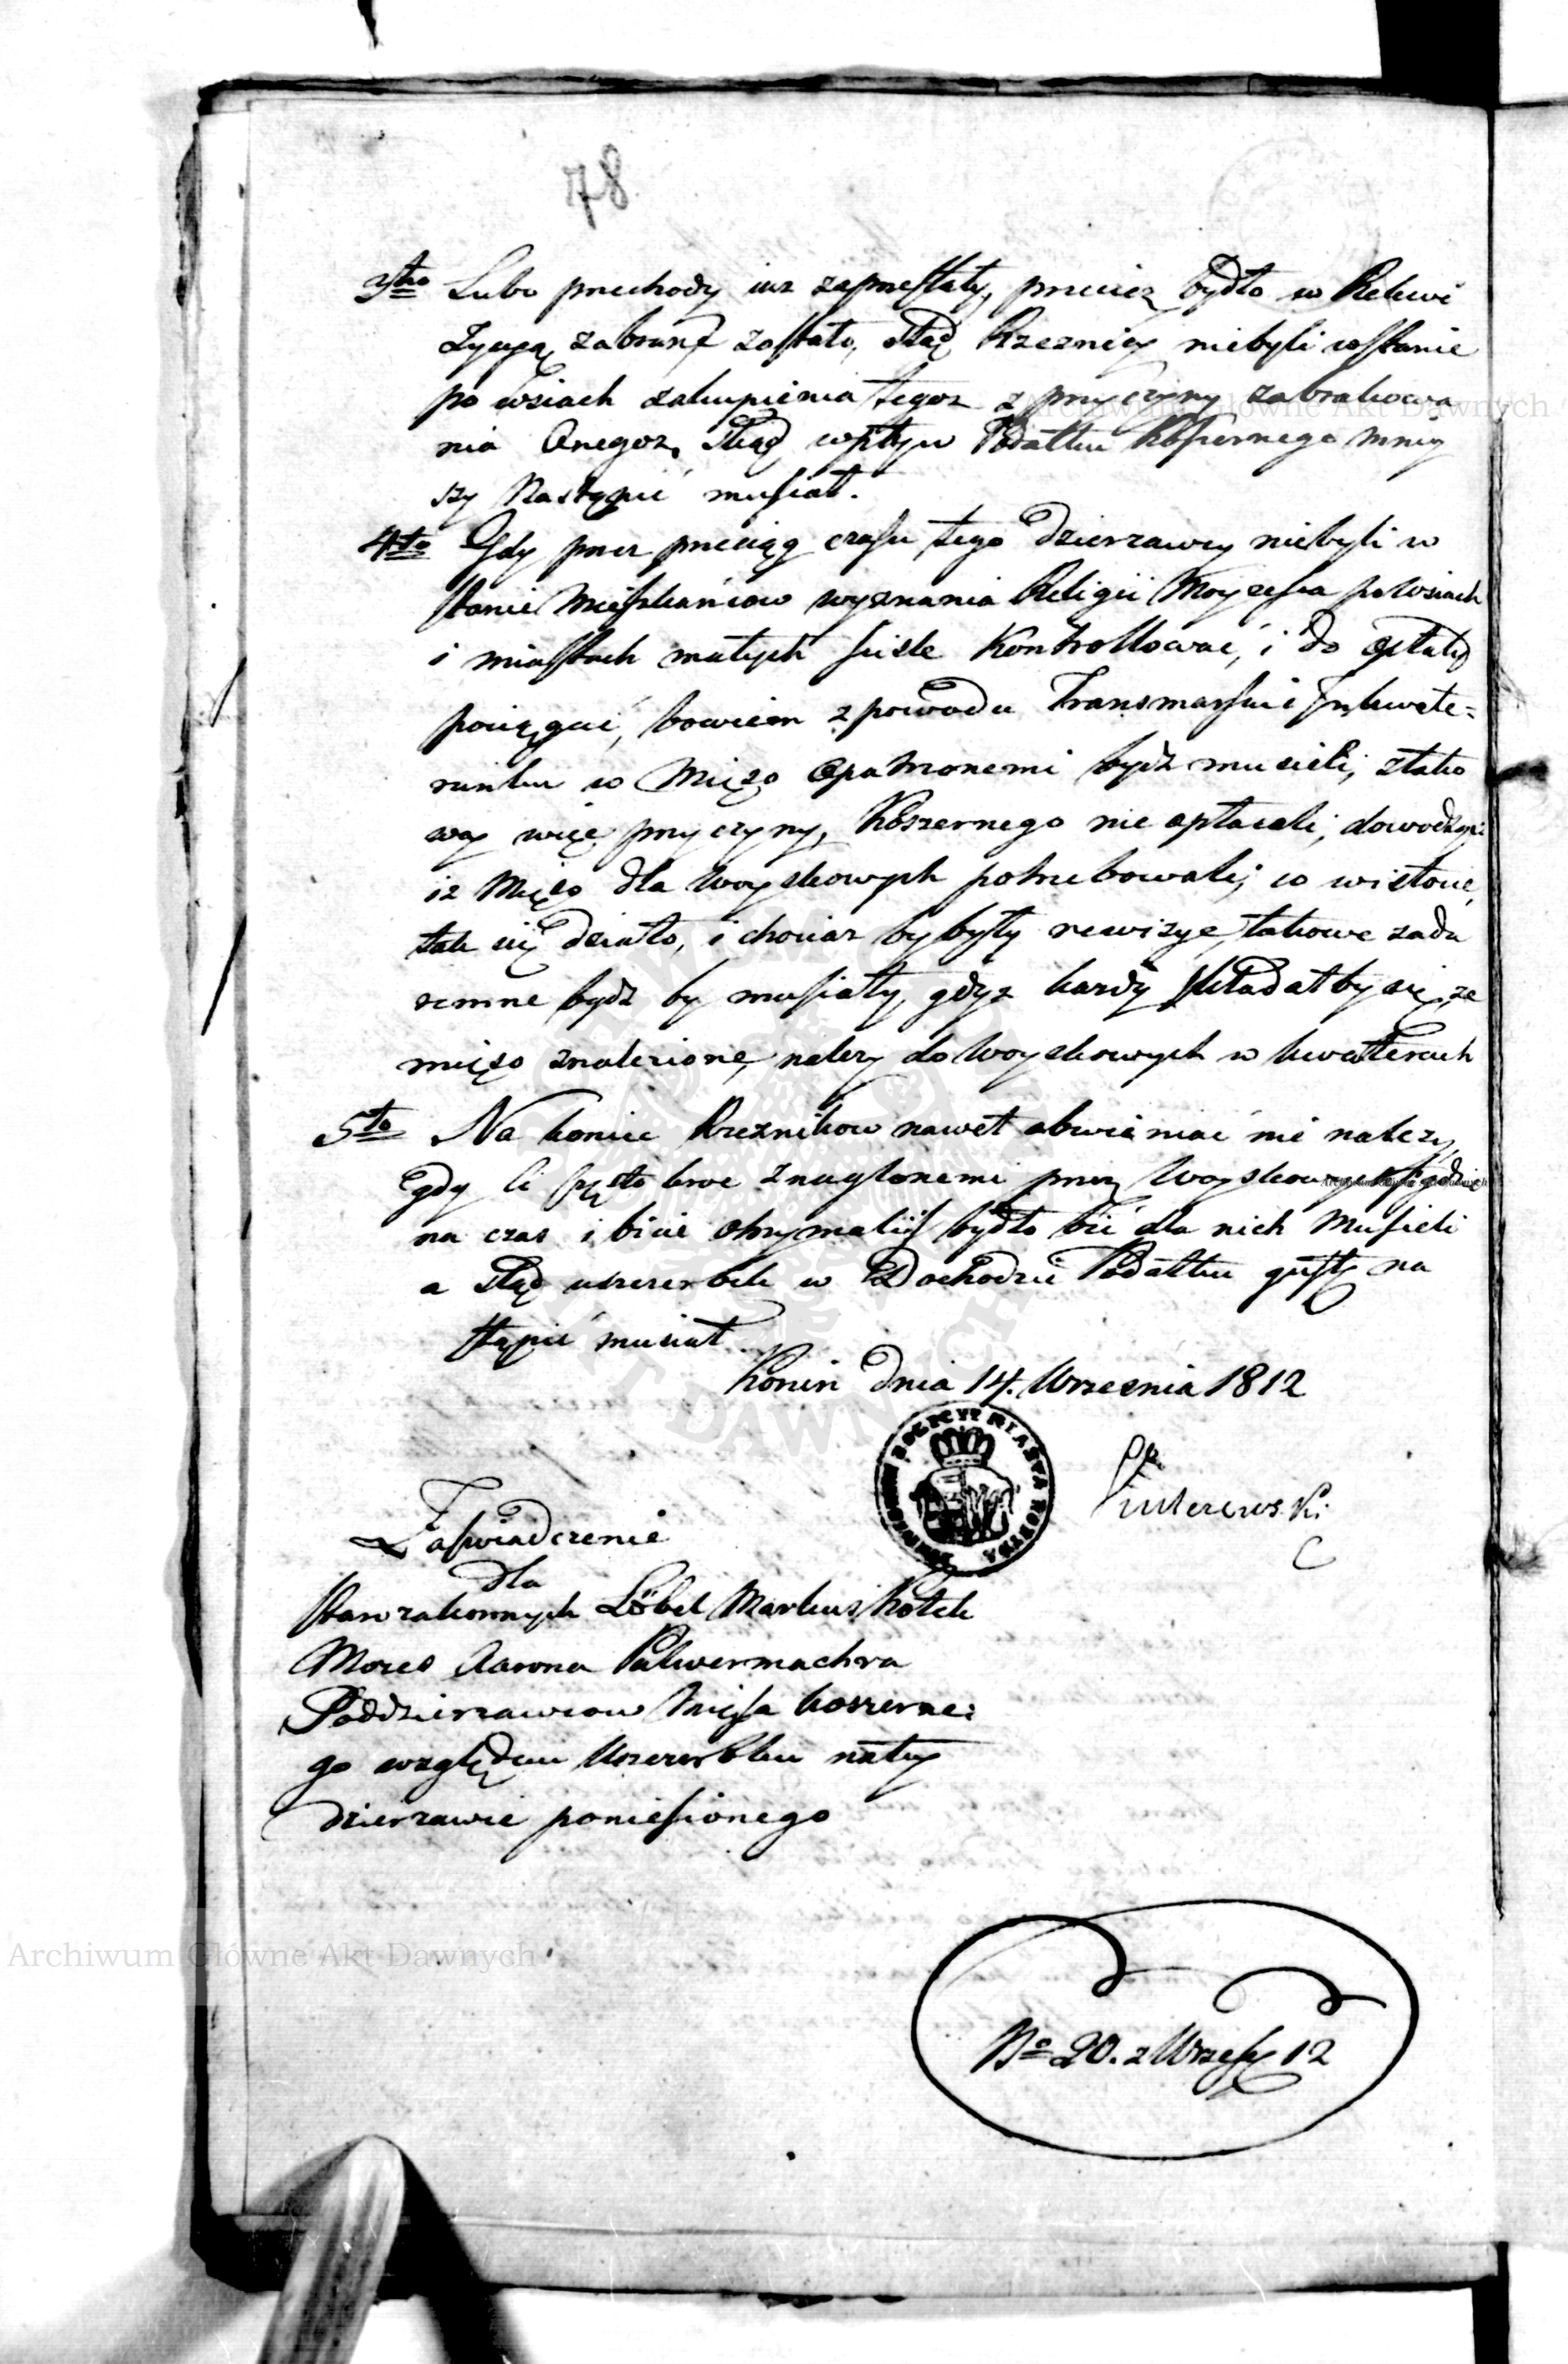 78
3tio Lubo przechody iuz zaprzestały, przeciez bydło w Rekwi
zycyą zabrane zostało, stąd Rzeznicy niebyli wstanie
po wsiach zakupienia tegoz z przyczyny zabrakowa
nia Onegoz, Stąd wpływ Podatku Koszernego mniey
szy Nastąpić musiał.
4to Gdy przez przeciąg czasu tego Dzierzawcy niebyli w
stanie Mieszkańcow wyznania Religii Moyzesza po Wsiach
i miastach małych scisle Kontrollować, i do opłaty
pociągać, bowiem z powodu Transmarszu i Inkwate-
runku w Mięso Opatrzonemi bydz musieli, z tako
wey więc przyczyny, Koszernego nie opłacali, dowodząc
iz Mięso dla Woyskowych potrzebowali, co wistocie,
tak się działo, i chociaz by były rewizye, takowe zada
remne bydz by musiały, gdyz kazdy składałby się, ze
mięso znalezione, nalezy do Woyskowych w kwaterach
5to Na koniec Rzeznikow nawet obwieniać nie nalezy,
gdy li częstokroc znaglonemi przez Woyskowych
na czas i bicie otrzymali bydło bić dla nich Musieli
a Stąd uszczerbek w Dochodzie Podatku na
stąpić musiał.
Konin Dnia 14. Września 1812
BURMISTRZ POLICYI MIASTA KONINA
Zaswiadczenie
dla
starozakonnych Löbel Markus Kotek
Mozes Aarona Pulwermachra
Poddzierzawcow Mięsa koszerne-
go względem Uszczerbku na tey
dzierzawie poniesionego
No 20. z Wrzesz 12
Archiwum Główne Akt Dawnych
Archiwum Główne Akt Dawnych